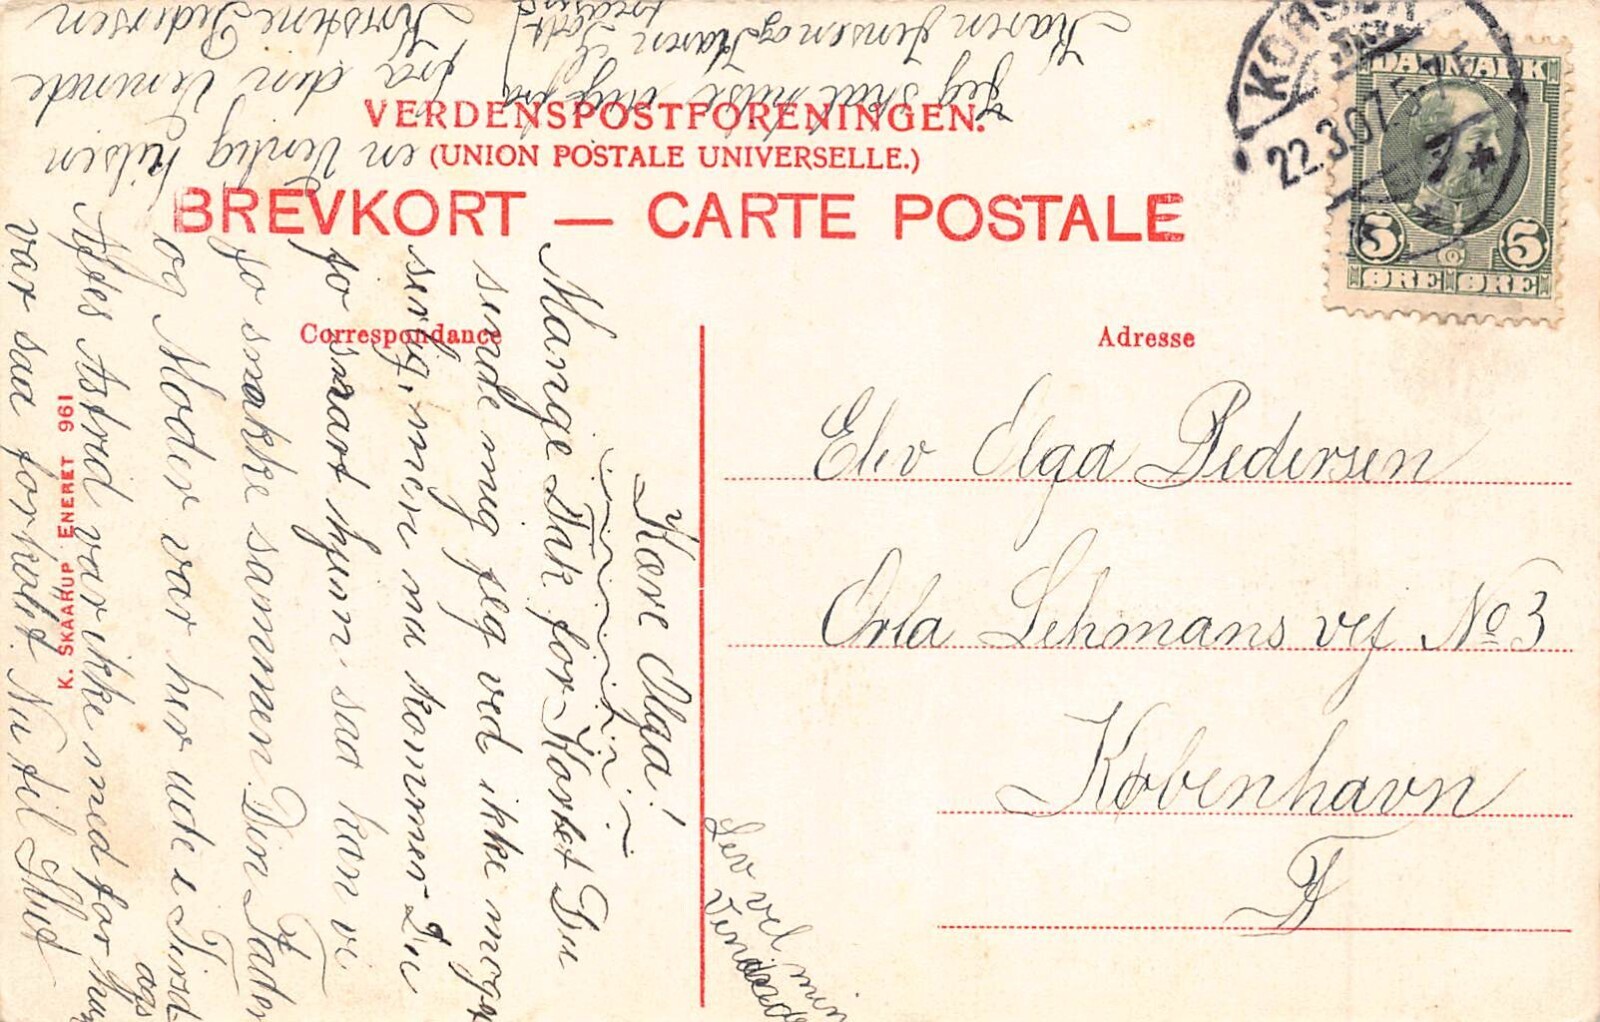 VERDENSPOSTFORENINGEN.
(UNION POSTALE UNIVERSELLE.)
BREVKORT — CARTE POSTALE
KORSØR
22.3.07. 5-7 E
DANMARK
5 5
ØRE ØRE
Correspondance
Adresse
Elev Olga Pedersen
Orla Lehmans vej No 3
København
F
K. SKAARUP ENERET 961
Kære Olga!
Mange Tak for Kortet Du
sende mig jeg ved ikke noget
men nu kommer Du
jo snart hjem saa kan vi
jo snakke sammen Din Fader
og Moder var her ude i Tirsd-
ags
Aftes Astrid var ikke med for hun
var saa forkølet Nu til Slut
en Venlig hilsen
fra din Veninde
Kirstine Pedersen
Jeg skal hilse dig fra
Karen Jensen og Karen
Lev vel min
Veninde